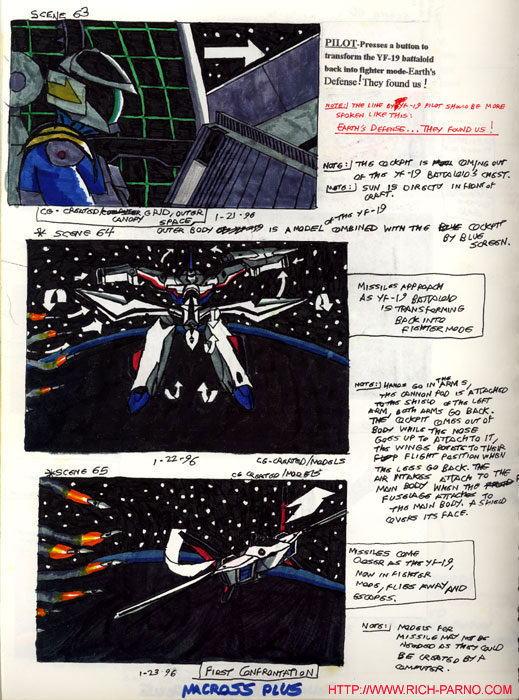 SCENE 63
PILOT-Presses a button to
transform the YF-19 battaloid
back into fighter mode-Earth's
Defense! They found us!
NOTE: THE LINE BY YF-19 PILOT SHOULD BE MORE
SPOKEN LIKE THIS:
EARTH'S DEFENSE... THEY FOUND US!
NOTE: THE COCKPIT IS COMING OUT
OF THE YF-19 BATTALOID'S CHEST.
NOTE: SUN IS DIRECTLY IN FRONT OF
CRAFT.
CG-CREATED GRID, OUTER
CANOPY SPACE,
1-21-96
OF THE YF-19
OUTER BODY IS A MODEL COMBINED WITH THE COCKPIT
BY BLUE
SCREEN.
* SCENE 64
MISSILES APPROACH
AS YF-19 BATTALOID
IS TRANSFORMING
BACK INTO
FIGHTER MODE
NOTE: HANDS GO IN THE ARMS,
THE CANNON POD IS ATTACHED
TO THE SHIELD OF THE LEFT
ARM, BOTH ARMS GO BACK.
THE COCKPIT COMES OUT OF
BODY WHILE THE NOSE
GOES UP TO ATTACH TO IT,
THE WINGS ROTATE TO THEIR
FLIGHT POSITION WHEN
THE LEGS GO BACK. THE
AIR INTAKES ATTACH TO THE
MAIN BODY WHEN THE
FUSELAGE ATTACHES TO
THE MAIN BODY. A SHIELD
COVERS ITS FACE.
1-22-96
CG-CREATED/MODELS
*SCENE 65
CG CREATED/MODELS
MISSILES COME
CLOSER AS THE YF-19,
NOW IN FIGHTER
MODE, FLIES AWAY AND
ESCAPES.
NOTE: MODELS FOR
MISSILE MAY NOT BE
NEEDED AS THEY COULD
BE CREATED BY A
COMPUTER.
1-23-96
FIRST CONFRONTATION
MACROSS PLUS
HTTP://WWW.RICH-PARNO.COM